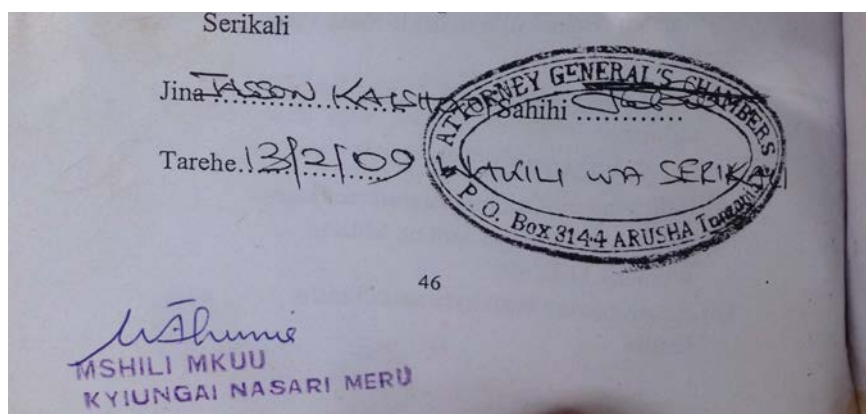 Serikali
Jina TASSON KAISHO Sahihi ............
Tarehe 13/2/09 WAKILI WA SERIKALI
ATTORNEY GENERAL'S CHAMBERS
P. O. Box 3144 ARUSHA Tanzania
46
MSHILI MKUU
KYIUNGAI NASARI MERU